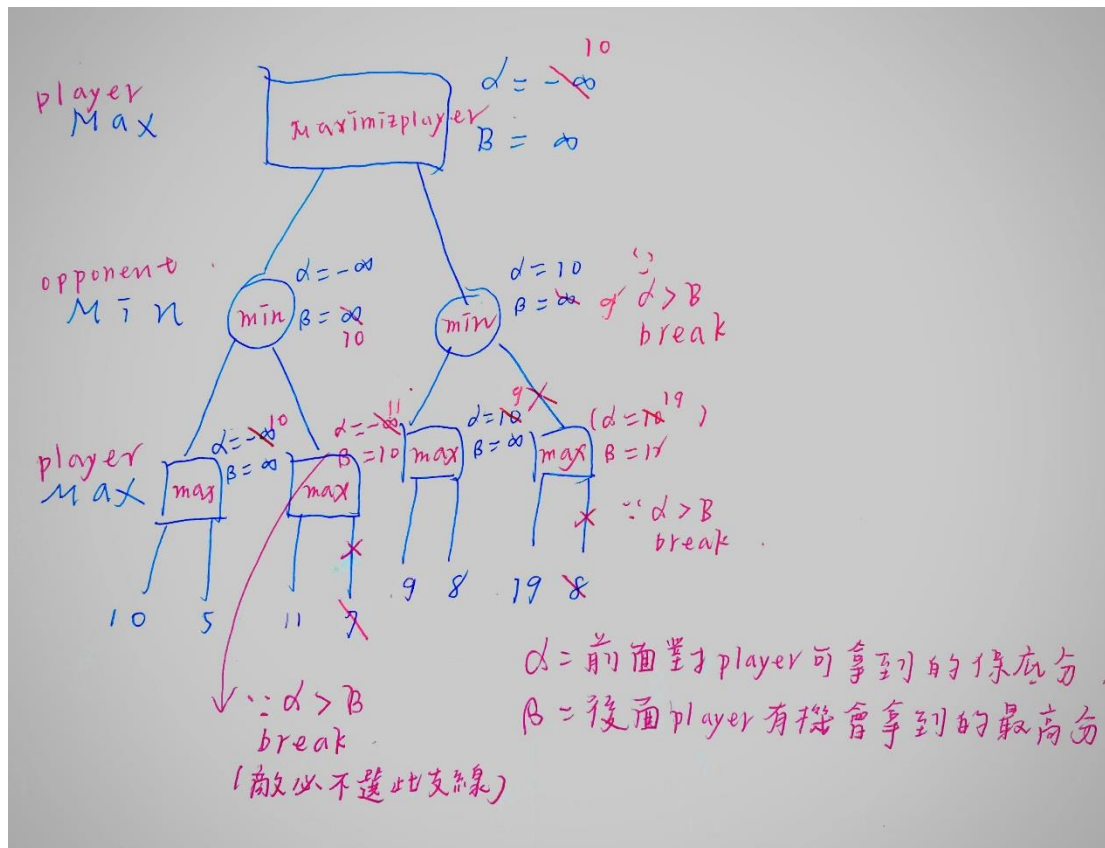 10
player
Max
Maximizplayer
α = -∞
β = ∞
opponent
Min
min
α = -∞
β = ∞
10
min
α = 10
β = ∞ 9
∵
α > β
break
player
Max
max
α = -∞ 10
β = ∞
max
α = -∞ 11
β = 10
max
9
α = 10
β = ∞
max
(α = 10 19)
∵ α > β
break
10 5 11 7 9 8 19 8
∵ α > β
break
(敵必不選此支線)
α = 前面對player可拿到的保底分
β = 後面player有機會拿到的最高分